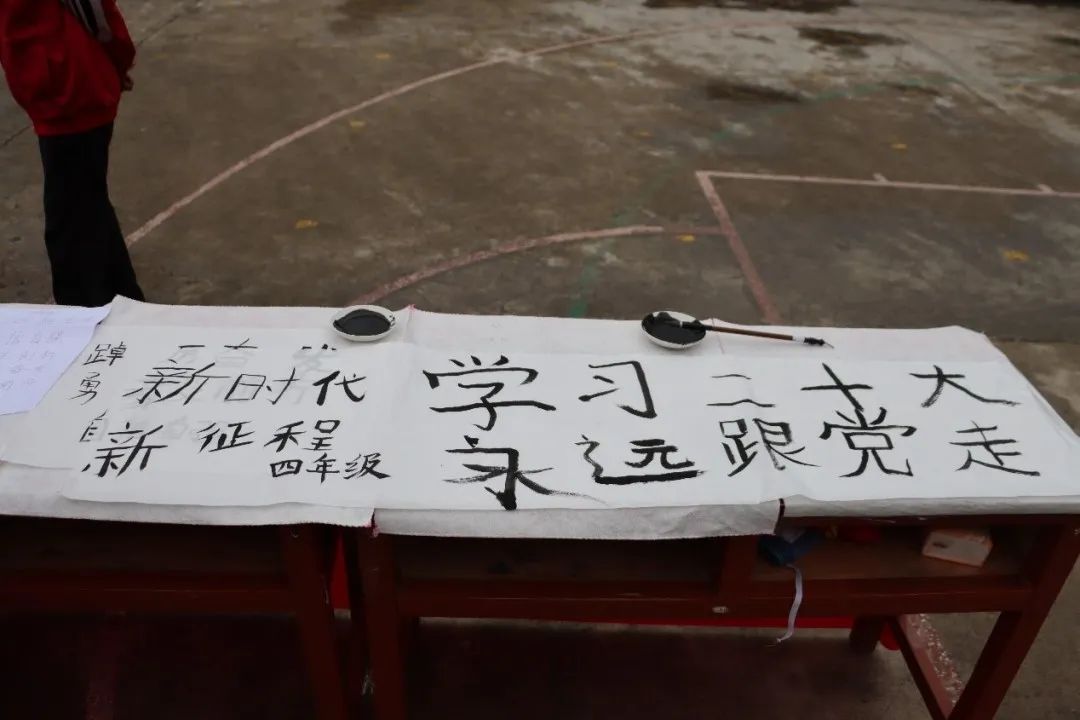 踔
勇
自
新时代
新征程
四年级
学习二十大
永远跟党走